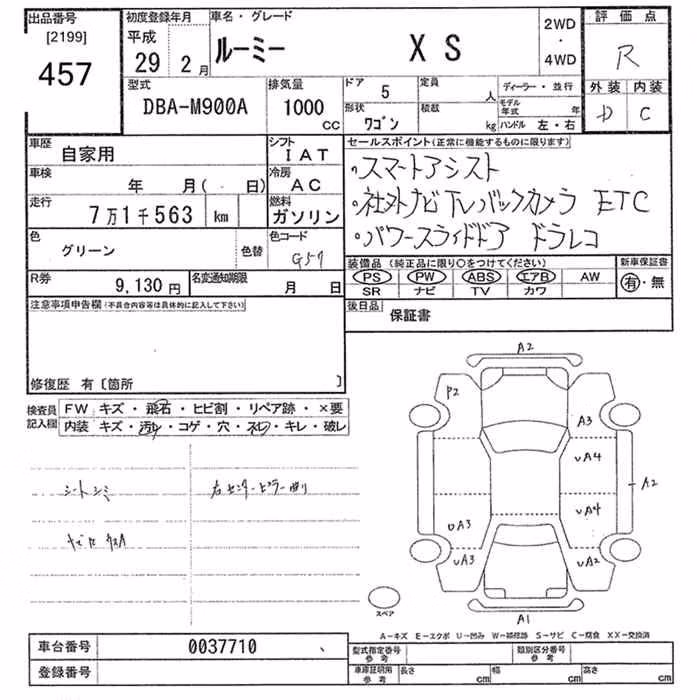 出品番号
[2199]
457
初度登録年月
平成
29 2月
車名・グレード
ルーミー XS
2WD
・
4WD
評価点
R
外装 内装
D C
型式
DBA-M900A
排気量
1000
CC
ドア
5
定員
人
形状
ワゴン
積載
kg
ディーラー・並行
モデル年式 年
ハンドル 左・右
車歴
自家用
シフト
IAT
車検
年 月( 日)
冷房
AC
走行
7万1千563 km
燃料
ガソリン
色
グリーン
色替
色コード
G57
R券
9,130円
名変通知期限
月 日
セールスポイント(正常に機能するものに限ります)
・スマートアシスト
・社外ナビ TV バックカメラ ETC
・パワースライドドア ドラレコ
装備品(純正品に限り○をつけてください)
PS PW ABS エアB AW
SR ナビ TV カワ
新車保証書
有・無
後日品
保証書
注意事項申告欄(不具合内容等は具体的に記入して下さい)
修復歴 有〔箇所 〕
検査員
記入欄
FW キズ・飛石・ヒビ割・リペア跡・×要
内装 キズ・汚れ・コゲ・穴・スレ・キレ・破レ
シートシミ
右センターピラー曲り
A2
P2
A3
UA4
A2
UA4
UA3
UA3
UA2
A1
スペア
A－キズ E－エクボ U－凹み W－補修跡 S－サビ C－腐食 XX－交換済
車台番号
0037710
登録番号
型式指定番号
参考
類別区分番号
参考
車庫証明用
参考
長さ cm
幅 cm
高さ cm